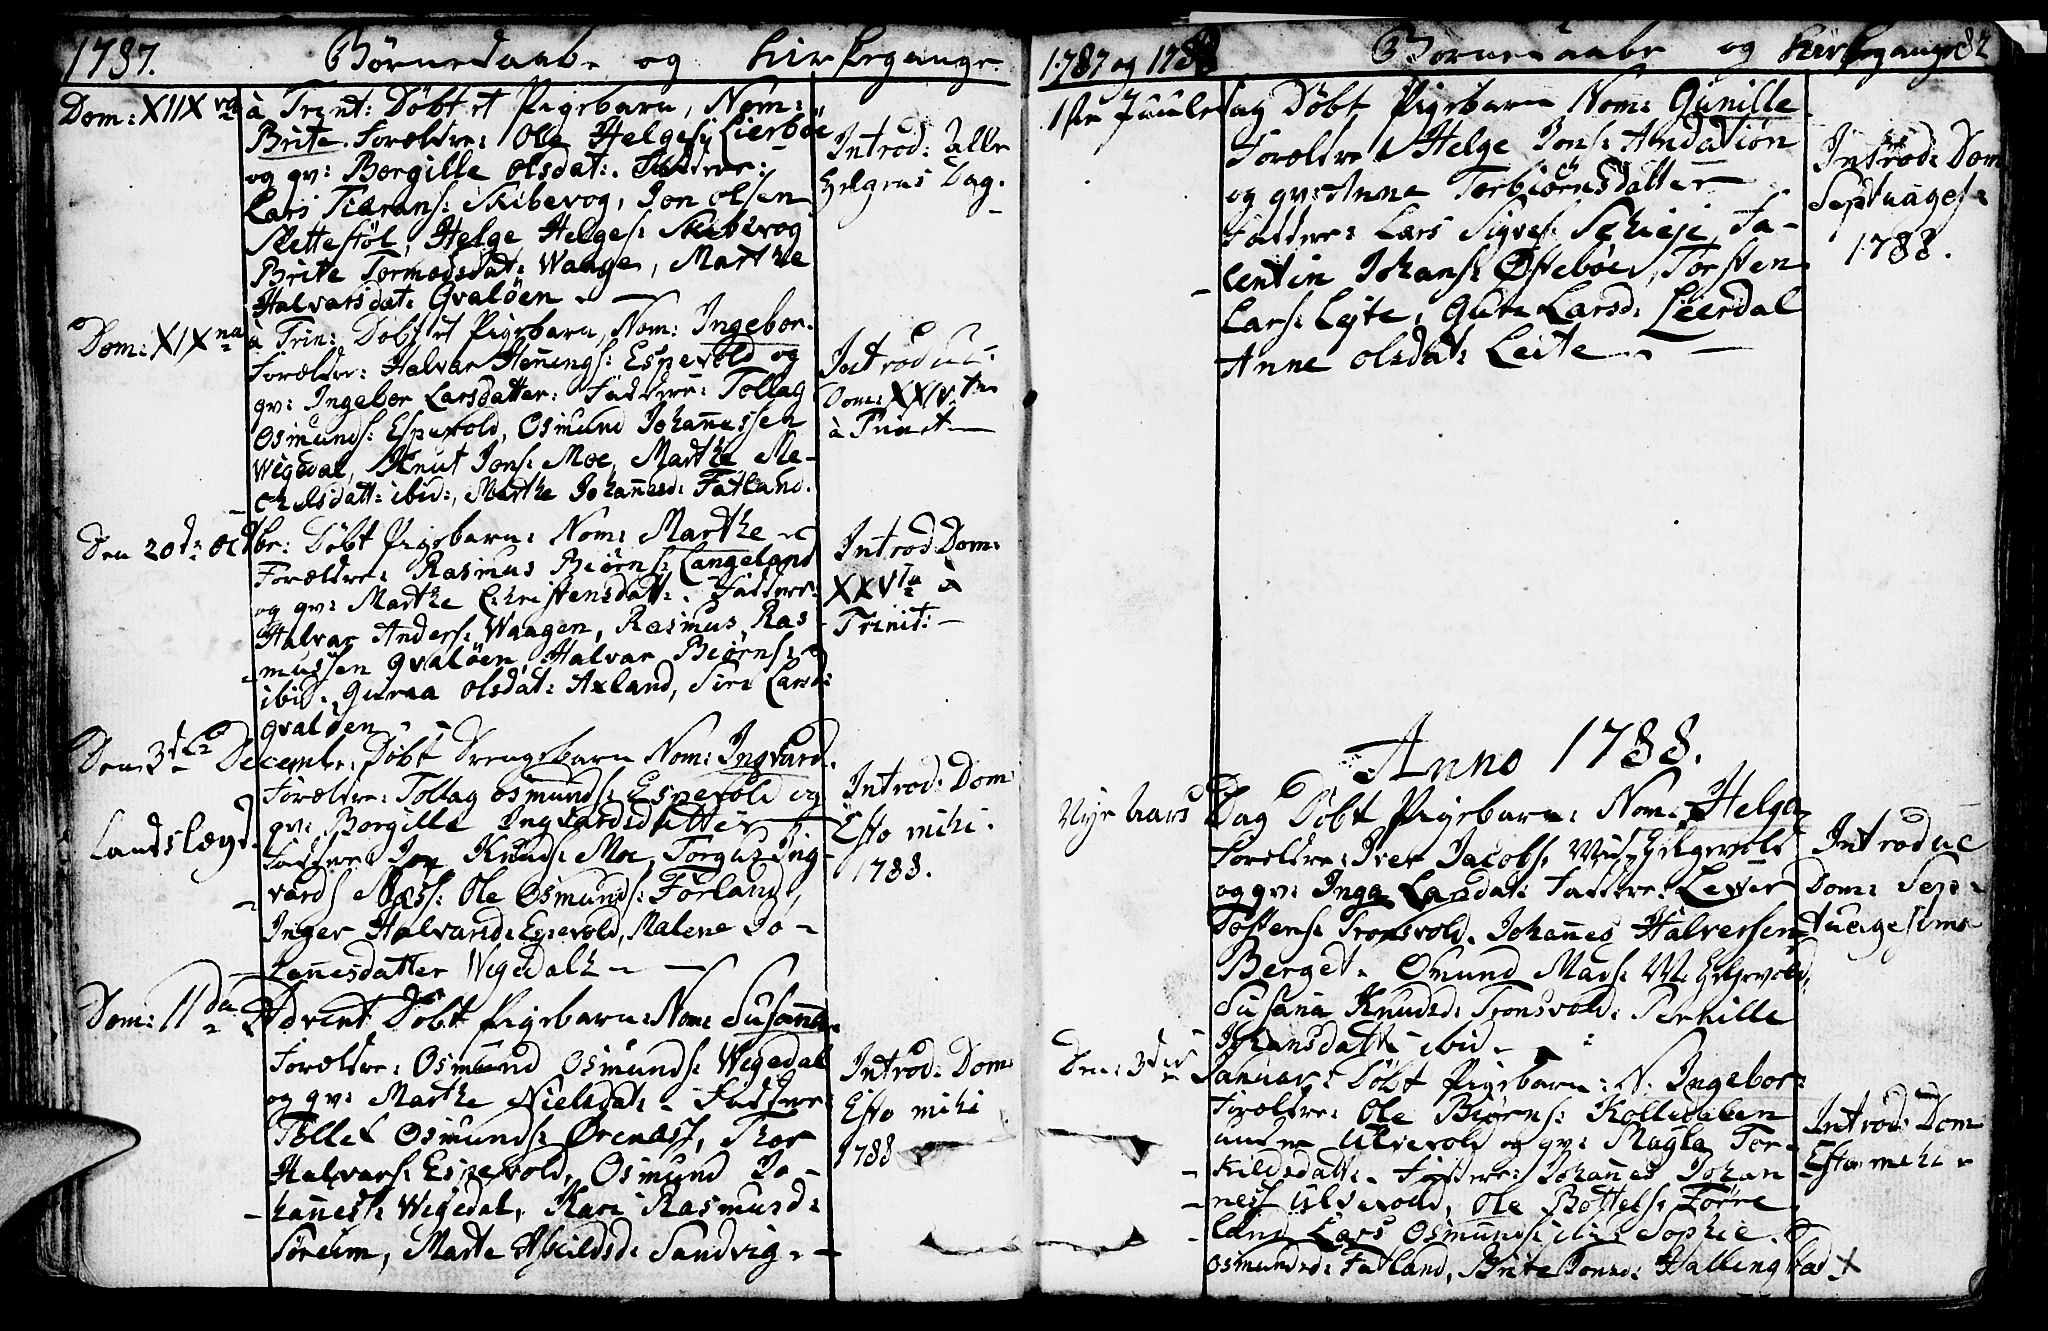 1787. Børnedaabe og Kirkegange.
Dom: XIIX va à Trint: Døbt et Pigebarn, Nom:
Brite. Forældre: Ole Helges: Lierbøe
og qv: Borgille Olsdat: Faddere:
Lars Skibevog, Jon Olsen
Slettestøl, Helge Helges: Skibevog
Brite Tormodsdat: Waage, Marthe
Halvarsdat: Qvaløen. —
Introd: Alle
Helgens Dag.
Dom: XIX na à Trin: Døbt et Pigebarn, Nom: Ingebor.
Forældre: Halvar Hennings: Espevold og
qv: Ingebor Larsdatter: Faddere: Tollag
Osmunds: Espevold, Osmund Johannessen
Wigedal, Knut Jons: Moe, Marthe Me-
chelsdatt: ibid:, Marthe Johannesd: Fatland.
Introduc:
Dom: XXIV ta
à Trinit —
Den 20de Octbr: Døbt Pigebarn: Nom: Marthe
Forældre: Rasmus Biørns: Langeland
og qv: Marthe Christensdatt: Faddere:
Halvar Anders: Waagen, Rasmus Ras-
mussen Qvaløen, Halvar Biørns:
ibid. Guroa Olsdat: Axland, Siri Larsd:
Qvaløen
Introd Dom:
XXV ta à
Trinit: —
Den 3de Decembr: Døbt Drengebarn Nom: Ingvard.
Forældre: Tollag Osmunds: Espevold og
qv: Borgille Ingvardsdatter
Landslægd. Faddere Jon Knuds: Moe, Torgus Ing-
vards Næss: Ole Osmunds: Førland,
Inger Halvardsd: Espevold, Malene Jo-
hannesdatter Wigedal —
Introd: Dom
Esto mihi.
1788.
Dom: II da Advent Døbt Pigebarn: Nom: Susanna
Forældre: Osmund Osmunds: Wigedal
og qv: Marthe Nielsdat: Faddere:
Tollef Osmunds: Ørenæss, Thor
Halvars: Espevold, Osmund Jo-
hannes: Wigedal, Kari Rasmusd:
Søreim, Marte Askildsd: Sandvig. —
Introd: Dom
Esto mihi
1788
1787 og 1788 Børnedaabe og Kirkegange 82
1ste Juuledag Døbt Pigebarn Nom: Gunille
Forældre Helge Jons: Amdatiøn
og qv: Anne Torbiørnsdatter
Faddere: Lars Sigves: Schieje, Fa-
lentin Johans: Østebøe, Torsten
Lars: Lejte, Guri Larsd: Leerdal
Anne Olsdat: Leite —
Introd: Dom
Septuages:
1788.
Anno 1788.
Nye Aars Dag Døbt Pigebarn: Nom: Helga
Forældre: Iver Jacobs: Helgevold
og qv: Inga Larsdat: Faddere: Lewer
Tostens: Tronsvold. Johannes Halversen
Berget. Omund Mads: W: Helgevold,
Susana Knudsd: Tronsvold: Pernille
Johansdatt: ibid.
Introduc
Dom: Sep-
tuagesima
Den 3die Januar: Døbt Pigebarn: N. Ingebor:
Forældre: Ole Biørns:
under Ulvevold og qv: Magla Tor-
kildsdatt: Faddere: Johannes Johan-
nes: Ulvevold, Ole Bottels: Førre
land Lars Osmunds: ibid: Sophie
Osmundsd: Fatland, Brite Jonsd: Hallingstad
Introd: Dom
Esto mihi